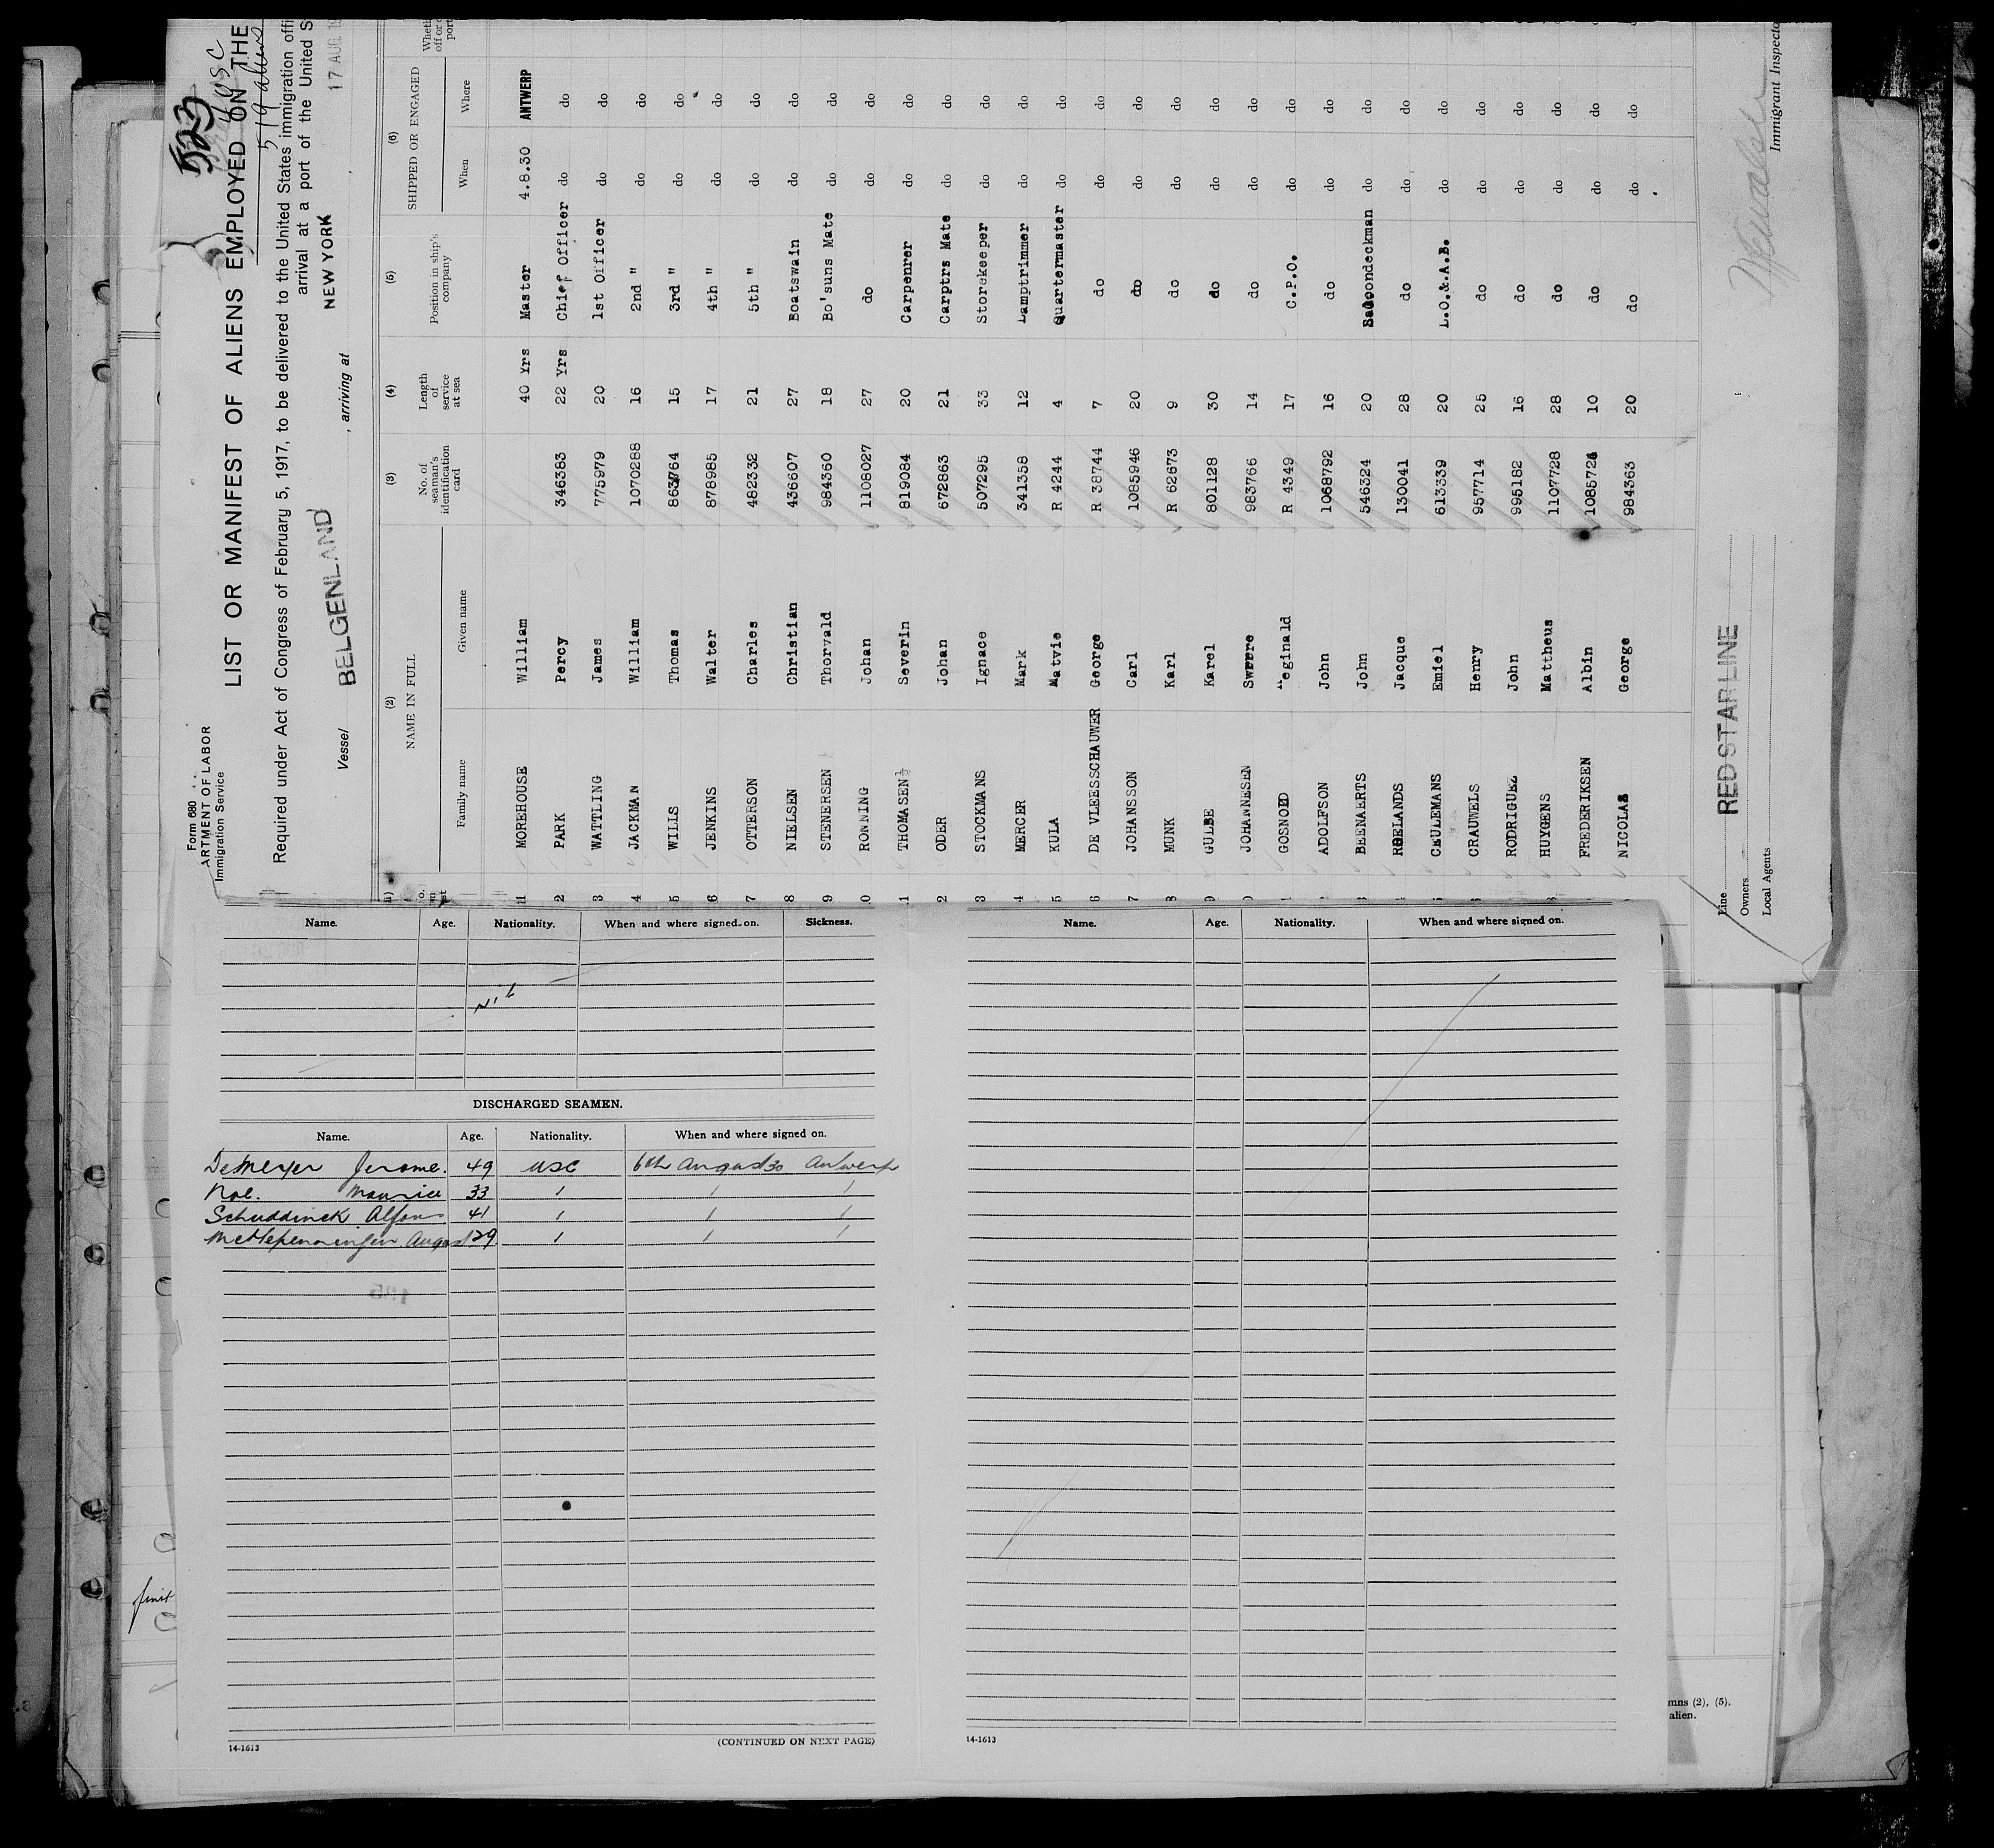 523
519 aliens
Form 680
ARTMENT OF LABOR
Immigration Service
LIST OR MANIFEST OF ALIENS EMPLOYED ON THE
Required under Act of Congress of February 5, 1917, to be delivered to the United States immigration offi
arrival at a port of the United S
Vessel BELGENLAND , arriving at NEW YORK , 17 AUG 19
(2) (3) (4) (5) (6)
NAME IN FULL No. of seaman's identification card Length of service at sea Position in ship's company SHIPPED OR ENGAGED
Family name Given name When Where
1 MOREHOUSE William 40 Yrs Master 4.8.30 ANTWERP
2 PARK Percy 346383 22 Yrs Chief Officer do do
3 WATTLING James 775979 20 1st Officer do do
4 JACKMAN William 1070288 16 2nd " do do
5 WILLS Thomas 863764 15 3rd " do do
6 JENKINS Walter 878985 17 4th " do do
7 OTTERSON Charles 482332 21 5th " do do
8 NIELSEN Christian 436607 27 Boatswain do do
9 STENERSEN Thorvald 984360 18 Bo'suns Mate do do
0 RONNING Johan 1108027 27 do do do
1 THOMASEN Severin 819084 20 Carpenrer do do
2 ODER Johan 672863 21 Carptrs Mate do do
3 STOCKMANS Ignace 507295 33 Storekeeper do do
4 MERCER Mark 341358 12 Lamptrimmer do do
5 KULA Matvie R 4244 4 Quartermaster do do
6 DE VLEESSCHAUWER George R 38744 7 do do do
7 JOHANSSON Carl 1085946 20 do do do
8 MUNK Karl R 62673 9 do do do
9 GULBE Karel 801128 30 do do do
0 JOHANNESEN Swerre 983766 14 do do do
GOSNOLD eginald R 4349 17 C.P.O. do do
ADOLFSON John 1068792 16 do do do
BEENAERTS John 546324 20 Balcondeckman do do
ROELANDS Jacque 130041 28 do do do
CEULEMANS Emiel 613339 20 L.O.&.A.B. do do
CRAUWELS Henry 957714 25 do do do
RODRIGUEZ John 995182 16 do do do
HUYGENS Mattheus 1107728 28 do do do
FREDERIKSEN Albin 1085726 10 do do do
NICOLAS George 984363 20 do do do
Line RED STAR LINE
Owners
Local Agents
Immigrant Inspecto
Name. Age. Nationality. When and where signed on. Sickness.
Nil
DISCHARGED SEAMEN.
Name. Age. Nationality. When and where signed on.
DeMeyer Jerome. 49 USC 6th August 30 Antwerp
Maurice 33
Schuddinck Alfons 41
August 29
14-1613 (CONTINUED ON NEXT PAGE)
Name. Age. Nationality. When and where signed on.
14-1613
mns (2), (5).
alien.